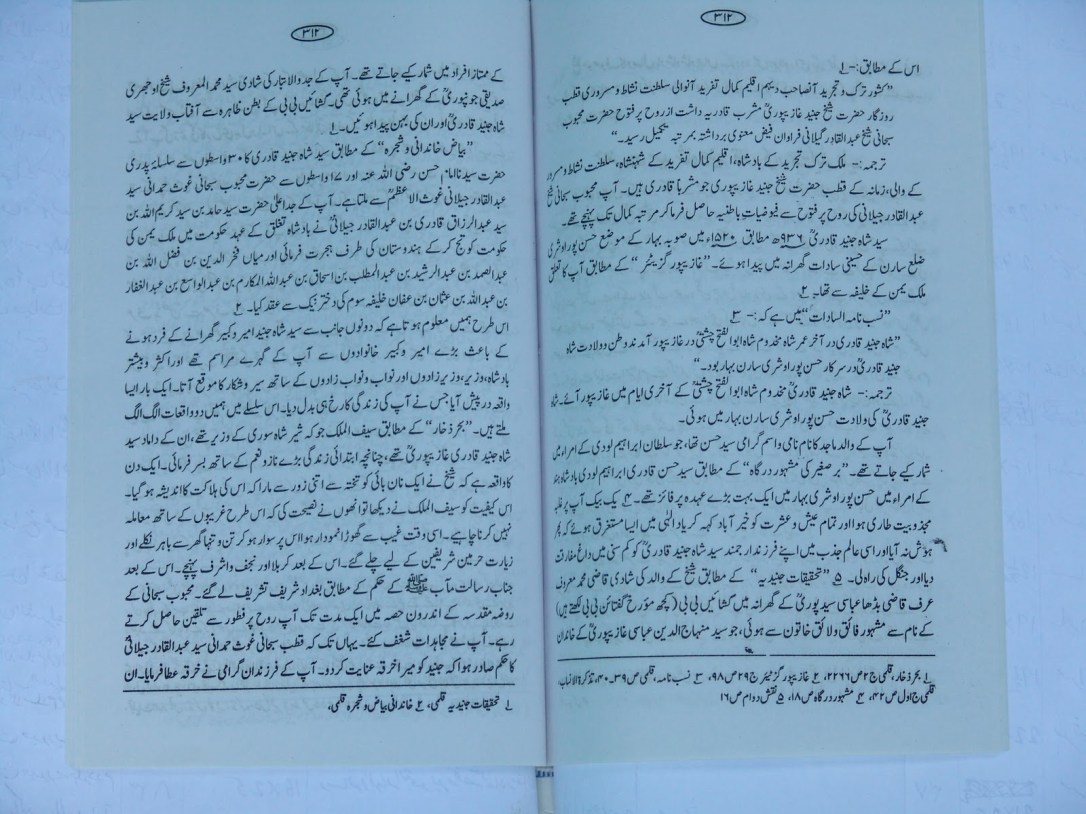 ۳۱۲
اس کے مطابق:۔ ۱
”کشور ترک و تجرید آنصاحب دیہم اقلیم کمال تفرید آنوالی سلطنت نشاط و مسروری قطب
روزگار حضرت شیخ جنید غازیپوریؒ مشرب قادریہ داشت از روح پر فتوح حضرت محبوب
سبحانی شیخ عبدالقادر گیلانی فراوان فیض معنوی برداشتہ بمرتبہ تکمیل رسید۔“
ترجمہ:۔ ملک ترک تجرید کے بادشاہ، اقلیم کمال تفرید کے شہنشاہ، سلطنت نشاط و مسرور
کے والی، زمانہ کے قطب حضرت شیخ جنید غازیپوری جو مشرباً قادری ہیں۔ آپ محبوب سبحانی شیخ
عبدالقادر جیلانی کی روح پر فتوح سے فیوضیات باطنیہ حاصل فرما کر مرتبہ کمال تک پہنچے تھے۔
سید شاہ جنید قادریؒ ۹۳۶ھ مطابق ۱۵۲۰ء میں صوبہ بہار کے موضع حسن پور اوشری
ضلع سارن کے حسینی سادات گھرانہ میں پیدا ہوئے۔ ”غازیپور گزیٹر“ کے مطابق آپ کا تعلق
ملک یمن کے خلیفہ سے تھا۔ ۲
”نسب نامہ السادات“ میں ہے کہ:۔ ۳
”شاہ جنید قادری در آخر عمر شاہ مخدوم شاہ ابوالفتح چشتیؒ در غازیپور آمدند وطن و ولادت شاہ
جنید قادریؒ در سرکار حسن پور اوشری سارن بہار بود۔“
ترجمہ:۔ شاہ جنید قادریؒ مخدوم شاہ ابوالفتح چشتیؒ کے آخری ایام میں غازیپور آئے۔ شاہ
جنید قادریؒ کی ولادت حسن پور اوشری سارن بہار میں ہوئی۔
آپ کے والد ماجد کا نام نامی و اسم گرامی سید حسن تھا، جو سلطان ابراہیم لودی کے امراء میں
شمار کیے جاتے تھے۔ ”برصغیر کی مشہور درگاہ“ کے مطابق سید حسن قادری ابراہیم لودی بادشاہ ہند
کے امراء میں حسن پور اوشری بہار میں ایک بہت بڑے عہدہ پر فائز تھے۔ ۴ یک بیک آپ پر غلبہ
مجذوبیت طاری ہوا اور تمام عیش و عشرت کو خیر آباد کہہ کر یاد الٰہی میں ایسا مستغرق ہوئے کہ پھر
ہوش نہ آیا اور اسی عالم جذب میں اپنے فرزند ارجمند سید شاہ جنید قادریؒ کو کم سنی میں داغ مفارقت
دیا اور جنگل کی راہ لی۔ ۵ ”تحقیقات جنیدیہ“ کے مطابق شیخ کے والد کی شادی قاضی محمد معروف
عرف قاضی بڈھا عباسی سید پوریؒ کے گھرانہ میں گشائیں بی بی (کچھ مؤرخ گفتائن بی بی لکھتے ہیں)
کے نام سے مشہور فائق و لائق خاتون سے ہوئی، جو سید منہاج الدین عباسی غازیپوریؒ کے خاندان
۱ بحر ذخار، قلمی ج ۲ ص ۲۲۶۶، ۲ غازیپور گزٹیئر ج ۲۹ ص ۹۸، ۳ نسب نامہ، قلمی ص ۳۹۔۴۰، تذکرۃ الانساب،
قلمی ج اول ص ۴۲، ۴ مشہور درگاہ ص ۱۸، ۵ نقش دوام ص ۱۶
۳۱۲
کے ممتاز افراد میں شمار کیے جاتے تھے۔ آپ کے جد والا تبار کی شادی سید محمد المعروف شیخ اوجھری
صدیقی جونپوریؒ کے گھرانے میں ہوئی تھی۔ گشائیں بی بی کے بطن ظاہرہ سے آفتاب ولایت سید
شاہ جنید قادریؒ اور ان کی بہن پیدا ہوئیں۔ ۱
”بیاض خاندانی و شجرہ“ کے مطابق سید شاہ جنید قادری کا ۳۰ واسطوں سے سلسلۂ پدری
حضرت سیدنا امام حسن رضی اللہ عنہ اور ۱۷ واسطوں سے حضرت محبوب سبحانی غوث حمدانی سید
عبدالقادر جیلانی غوث الاعظمؒ سے ملتا ہے۔ آپ کے جد اعلیٰ حضرت سید حامد بن سید کریم اللہ بن
سید عبدالرزاق قادری بن عبدالقادر جیلانیؒ نے بادشاہ تغلق کے عہد حکومت میں ملک یمن کی
حکومت کو تج کر کے ہندوستان کی طرف ہجرت فرمائی اور میاں فخر الدین بن فضل اللہ بن
عبدالصمد بن عبدالرشید بن عبدالمطلب بن اسحاق بن عبداللہ المکارم بن عبدالواسع بن عبدالغفار
بن عبداللہ بن عثمان بن عفان خلیفہ سوم کی دختر نیک سے عقد کیا۔ ۲
اس طرح ہمیں معلوم ہوتا ہے کہ دونوں جانب سے سید شاہ جنید امیر و کبیر گھرانے کے فرد ہونے
کے باعث بڑے امیر و کبیر خانوادوں سے آپ کے گہرے مراسم تھے اور اکثر و بیشتر
بادشاہ، وزیر، وزیر زادوں اور نواب و نواب زادوں کے ساتھ سیر و شکار کا موقع آتا۔ ایک بار ایسا
واقعہ در پیش آیا جس نے آپ کی زندگی کا رخ ہی بدل دیا۔ اس سلسلے میں ہمیں دو واقعات الگ الگ
ملتے ہیں۔ ”بحر ذخار“ کے مطابق سیف الملک جو کہ شیر شاہ سوری کے وزیر تھے، ان کے داماد سید
شاہ جنید قادری غازیپوریؒ تھے، چنانچہ ابتدائی زندگی بڑے ناز و نعم کے ساتھ بسر فرمائی۔ ایک دن
کا واقعہ ہے کہ شیخ نے ایک نان بائی کو تختہ سے اتنی زور سے مارا کہ اس کی ہلاکت کا اندیشہ ہو گیا۔
اس کیفیت کو سیف الملک نے دیکھا تو انھوں نے نصیحت کی کہ اس طرح غریبوں کے ساتھ معاملہ
نہیں کرنا چاہیے۔ اسی وقت غیب سے گھوڑا نمودار ہوا اس پر سوار ہو کر تن و تنہا گھر سے باہر نکلے اور
زیارت حرمین شریفین کے لیے چلے گئے۔ اس کے بعد کربلا اور نجف واشرف پہنچے۔ اس کے بعد
جناب رسالت مآب ﷺ کے حکم کے مطابق بغداد شریف تشریف لے گئے۔ محبوب سبحانی کے
روضہ مقدسہ کے اندرون حصہ میں ایک مدت تک آپ روح پر فطور سے تلقین حاصل کرتے
رہے۔ آپ نے مجاہدات شغف کئے۔ یہاں تک کہ قطب سبحانی غوث حمدانی سید عبدالقادر جیلانیؒ
کا حکم صادر ہوا کہ جنید کو میرا خرقہ عنایت کر دو۔ آپ کے فرزندان گرامی نے خرقہ عطا فرمایا۔ ان
۱ تحقیقات جنیدیہ قلمی، ۲ خاندانی بیاض و شجرہ قلمی،